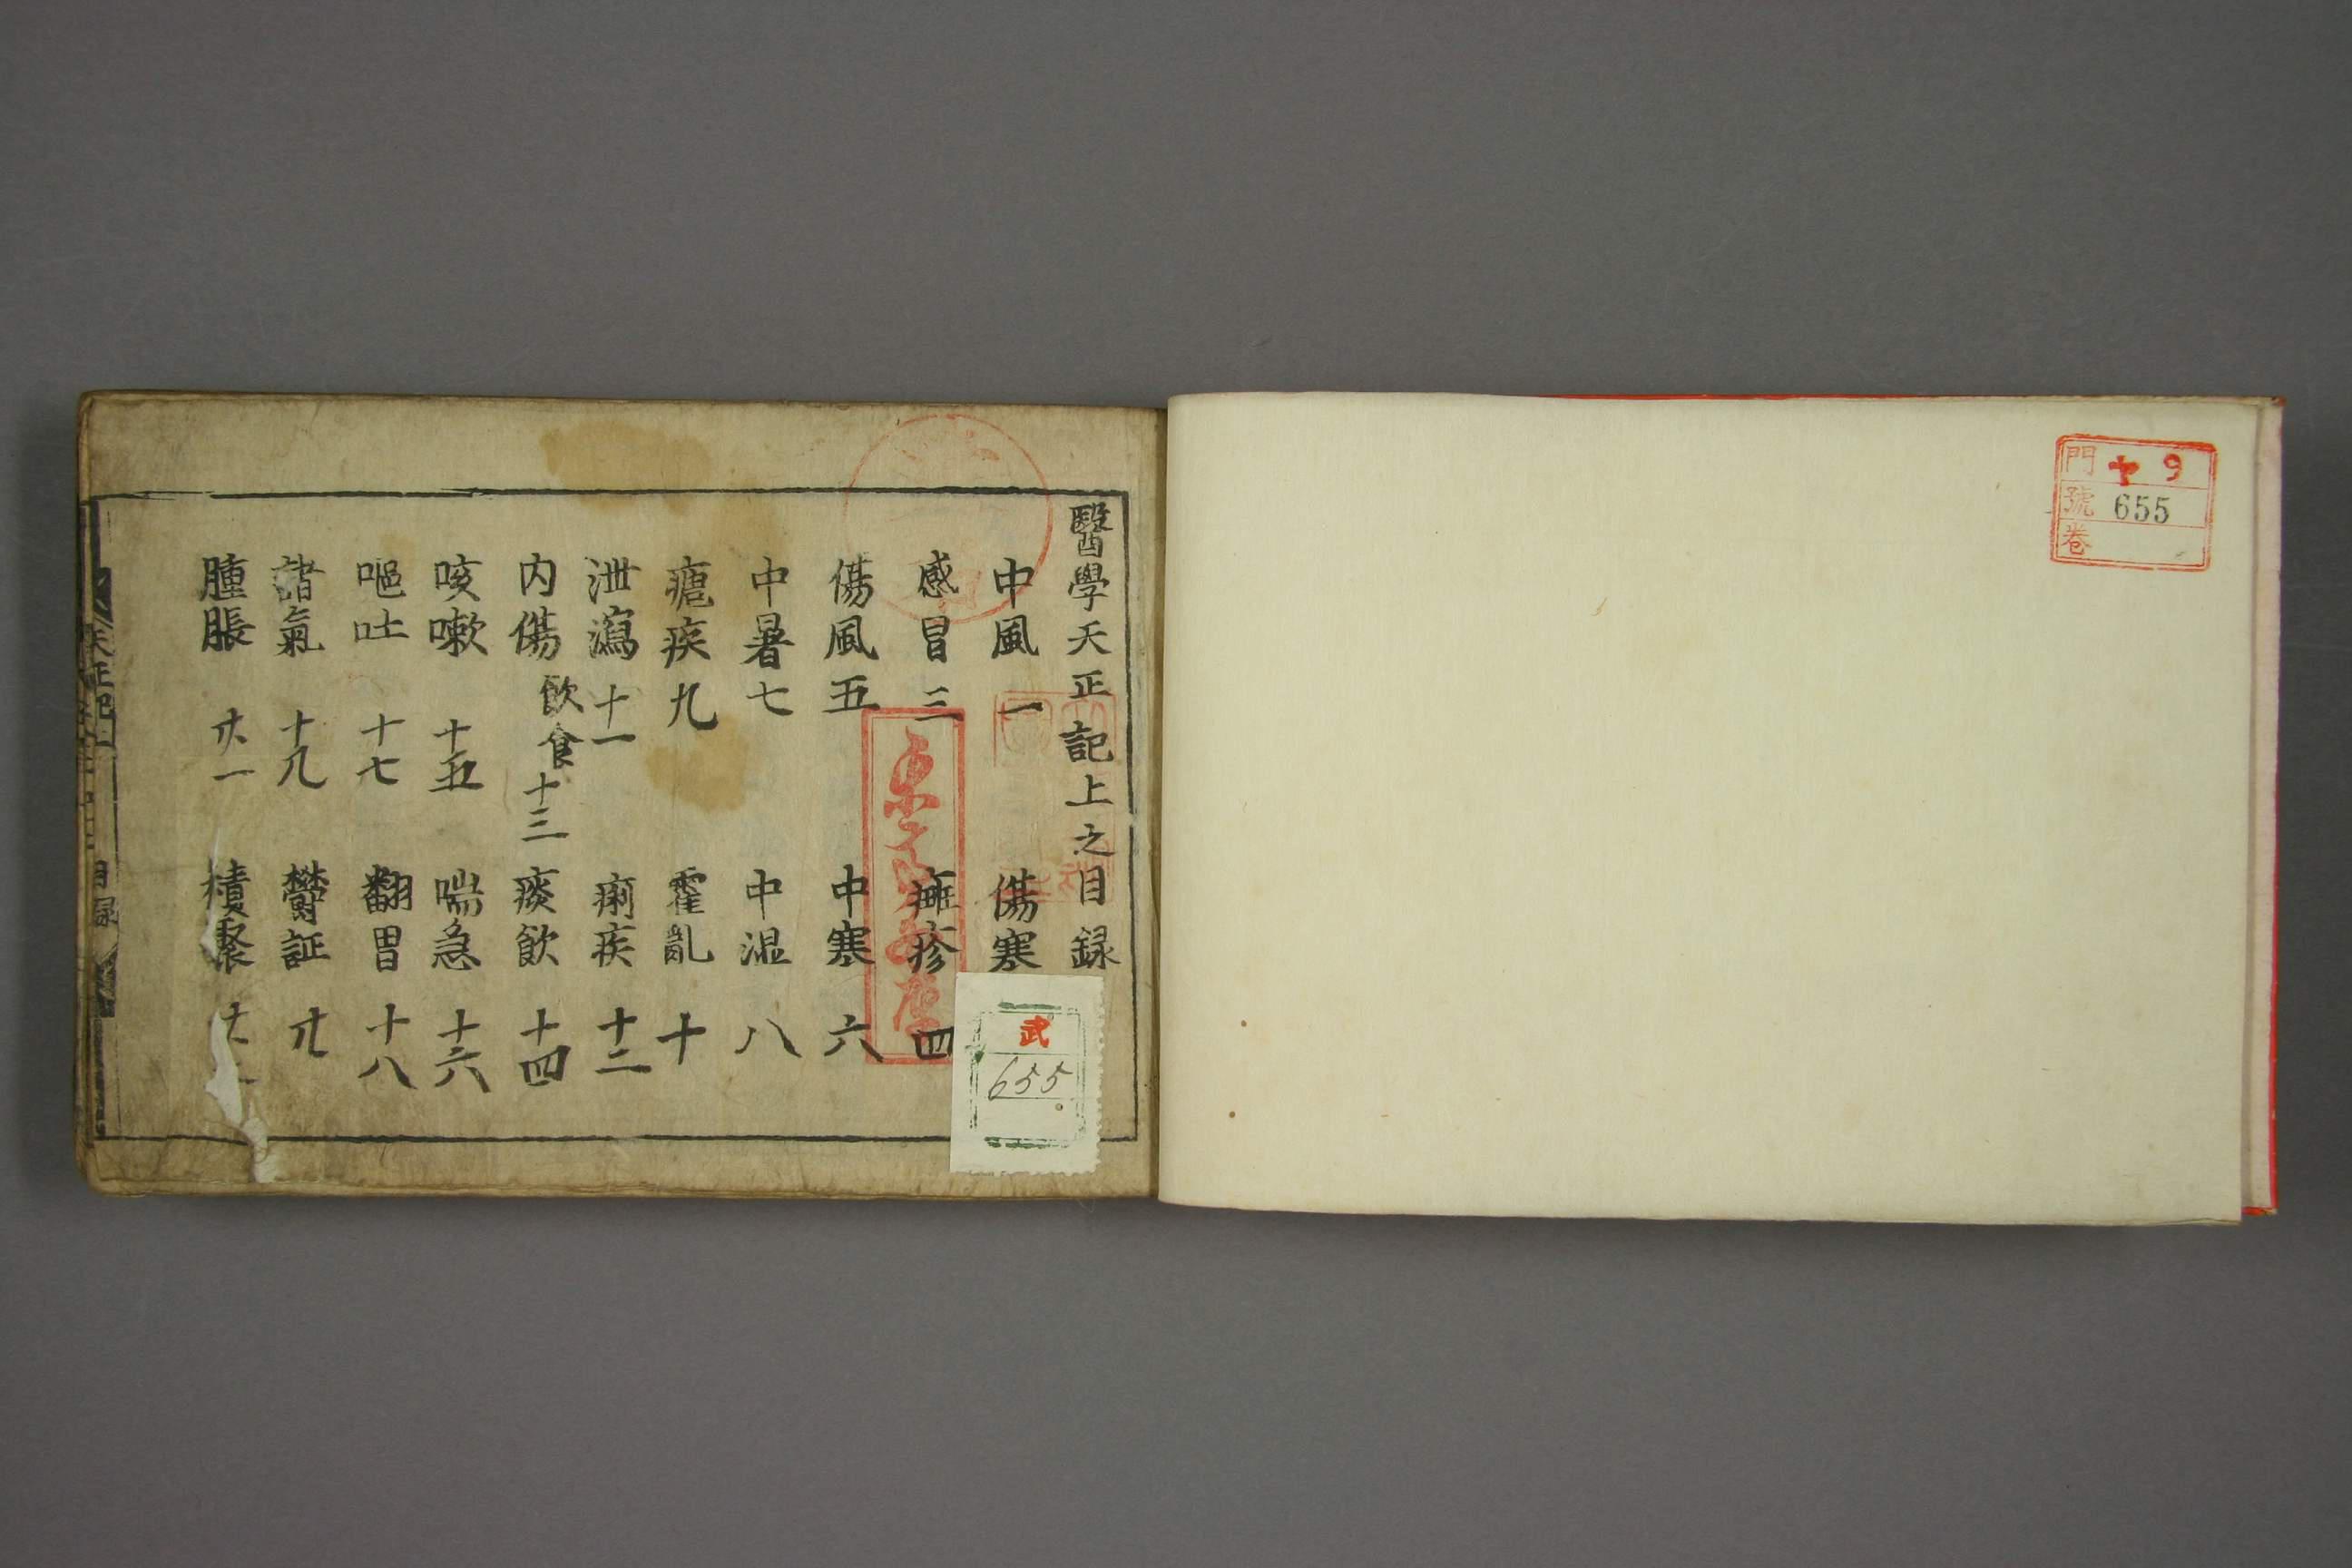 門 ヤ 9
號 655
卷
醫學天正記上之目録
中風 一 傷寒
感冒 三 㿈疹 四
傷風 五 中寒 六
中暑 七 中湿 八
瘧疾 九 霍亂 十
泄瀉 十一 痢疾 十二
内傷 飲食 十三 痰飲 十四
咳嗽 十五 喘急 十六
嘔吐 十七 翻胃 十八
諸氣 十九 鬱証 廾
腫脹 廾一 積聚
天正記上
目録
武
655